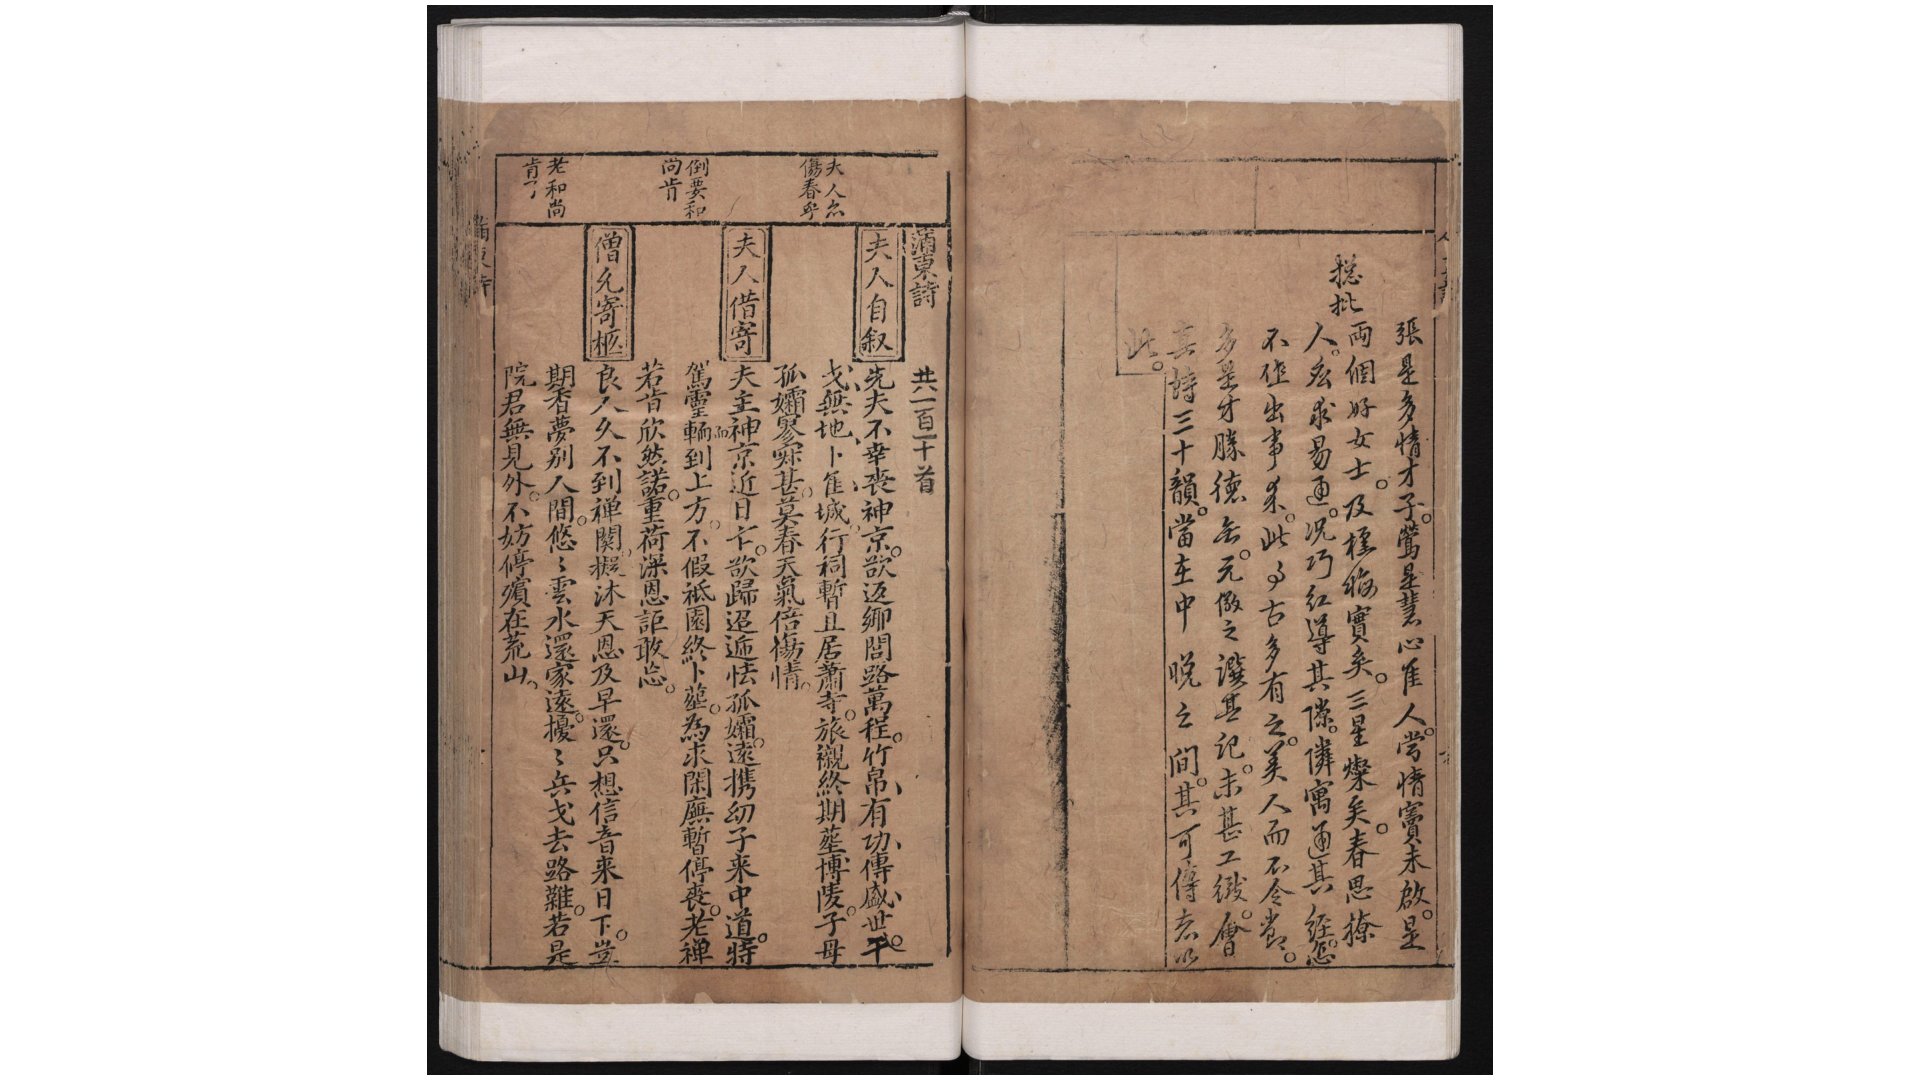 總批
張是多情才子。鶯是慧心佳人。當情竇未啟。是
兩個好女士。及摽梅實矣。三星燦矣。春思撩
人。忽求易通。況巧紅導其隙。隣寓通其經。怎
不做出事來。此事古多有之。美人而不令
多是才勝德
真詩三十韻。當在中晚之間。其可傳者以
此。
蒲東詩
共一百二十首
夫人自叙
先夫不幸喪神京。欲返鄉閭路萬程。竹帛有功傳盛世。干
戈無地卜佳城。行祠暫且居蕭寺。旅櫬終期塟博陵。子母
孤孀寥寂甚。莫春天氣倍傷情。
夫人借寄
夫主神京近日亡。欲歸迢逓怯孤孀。遠携幼子来中道。特
駕靈輀到上方。不假祗園終卜塟。為求閑廡暫停喪。老禅
若肯欣然諾。重荷深恩詎敢忘。
僧允寄柩
良人久不到禅関。擬沐天恩及早還。只想信音来日下。豈
期香夢別人間。悠〻雲水還家遠。擾〻兵戈去路難。若是
院君無見外。不妨停殯在荒山。
夫人亦
傷春乎
倒要和
尚肯
老和尚
肯了